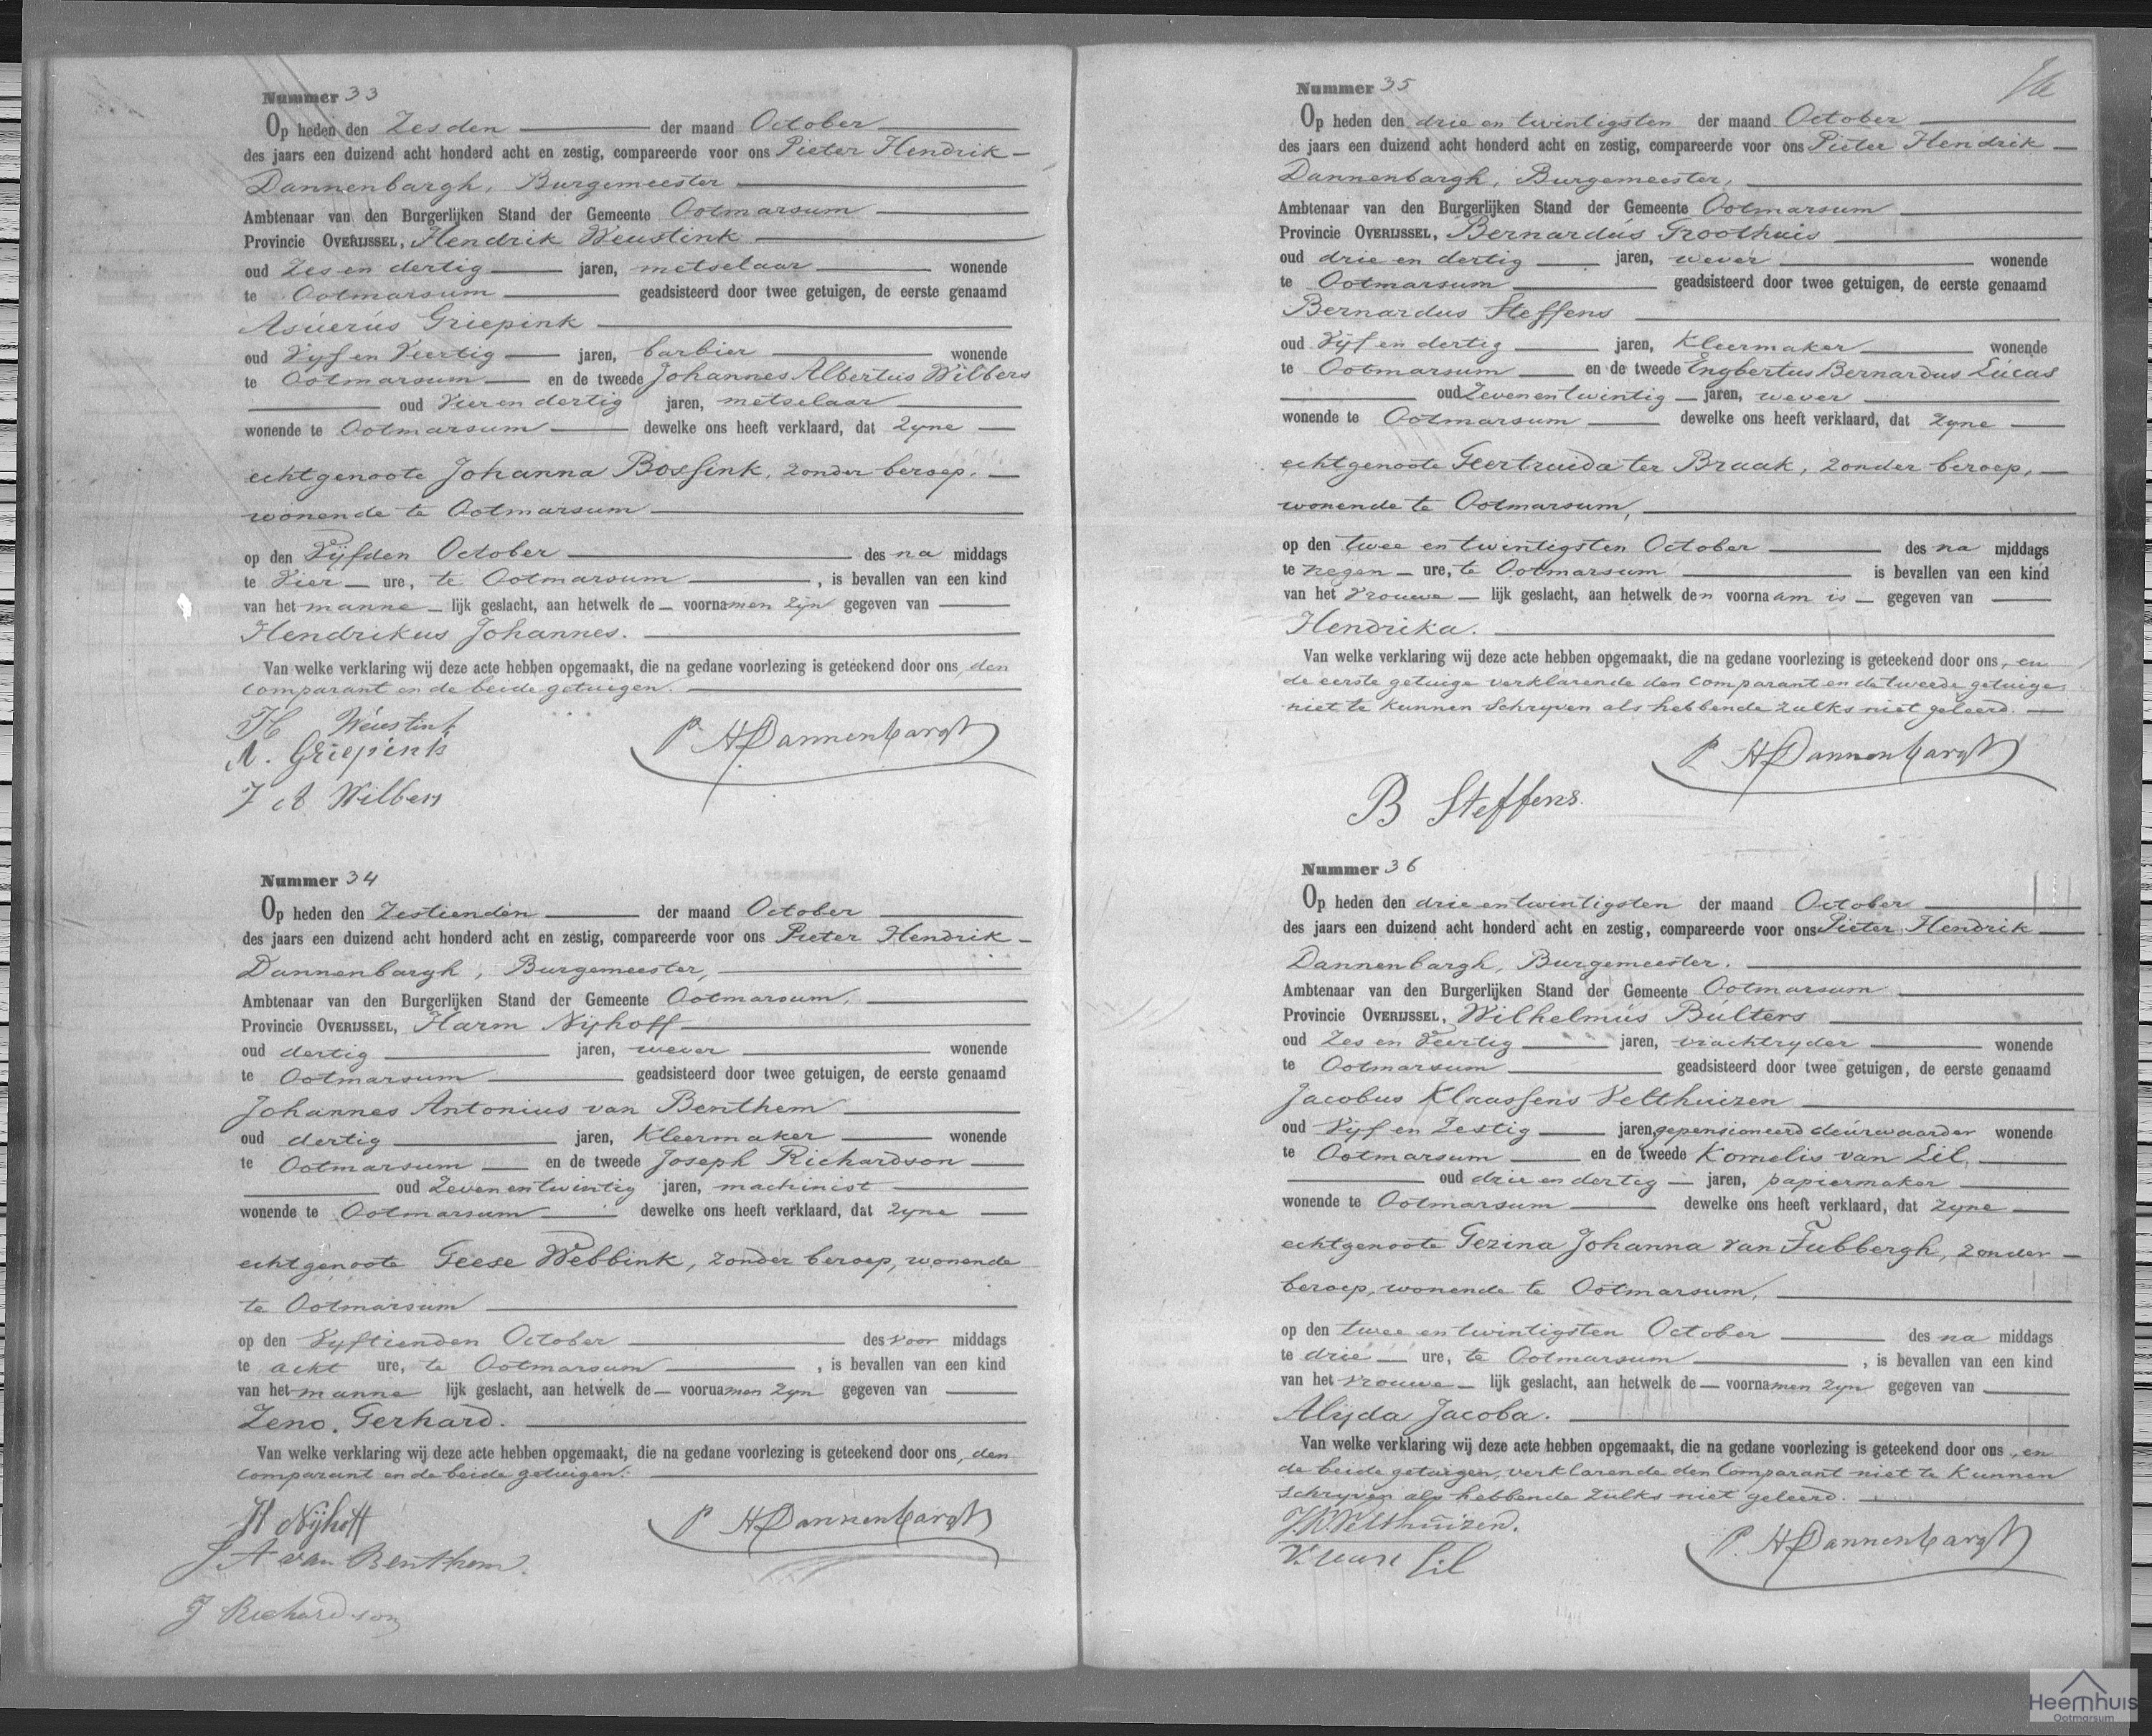 Nummer 33
Op heden den Zesden der maand October
des jaars een duizend acht honderd acht en zestig, compareerde voor ons Pieter Hendrik
Dannenbargh, Burgemeester
Ambtenaar van den Burgerlijken Stand der Gemeente Ootmarsum
Provincie OVERIJSSEL, Hendrik Weustink
oud Zes en dertig jaren, metselaar wonende
te Ootmarsum geadsisteerd door twee getuigen, de eerste genaamd
Asúerús Griepink
oud Vyf en Veertig jaren, barbier wonende
te Ootmarsum en de tweede Johannes Albertus Wilbers
oud Vier en dertig jaren, metselaar
wonende te Ootmarsum dewelke ons heeft verklaard, dat zyne
echtgenoote Johanna Bossink, zonder beroep,
wonende te Ootmarsum
op den Vijfden October des na middags
te Vier ure, te Ootmarsum, is bevallen van een kind
van het manne lijk geslacht, aan hetwelk de voornamen zyn gegeven van
Hendrikus Johannes.
Van welke verklaring wij deze acte hebben opgemaakt, die na gedane voorlezing is geteekend door ons, den
comparant en de beide getuigen.
H Weustink
A. Griepink
P. H Dannenbargh
J A Wilbers
Nummer 34
Op heden den Zestienden der maand October
des jaars een duizend acht honderd acht en zestig, compareerde voor ons Pieter Hendrik
Dannenbargh, Burgemeester,
Ambtenaar van den Burgerlijken Stand der Gemeente Ootmarsum,
Provincie OVERIJSSEL, Harm Nijhoff
oud dertig jaren, wever wonende
te Ootmarsum geadsisteerd door twee getuigen, de eerste genaamd
Johannes Antonius van Benthem
oud dertig jaren, Kleermaker wonende
te Ootmarsum en de tweede Joseph Richardson
oud Zeven en twintig jaren, machinist
wonende te Ootmarsum dewelke ons heeft verklaard, dat zyne
echtgenoote Geese Webbink, zonder beroep, wonende
te Ootmarsum
op den Vyftienden October des voor middags
te acht ure, te Ootmarsum, is bevallen van een kind
van het manne lijk geslacht, aan hetwelk de voornamen zyn gegeven van
Zeno. Gerhard.
Van welke verklaring wij deze acte hebben opgemaakt, die na gedane voorlezing is geteekend door ons, den
comparant en de beide getuigen.
H Nijhoff
P H Dannenbargh
J A van Benthem.
J Richardson
Nummer 35
Op heden den drie en twintigsten der maand October
des jaars een duizend acht honderd acht en zestig, compareerde voor ons Pieter Hendrik
Dannenbargh, Burgemeester,
Ambtenaar van den Burgerlijken Stand der Gemeente Ootmarsum
Provincie OVERIJSSEL, Bernardús Groothuis
oud drie en dertig jaren, wever wonende
te Ootmarsum geadsisteerd door twee getuigen, de eerste genaamd
Bernardus Steffens
oud Vijf en dertig jaren, Kleermaker wonende
te Ootmarsum en de tweede Engbertus Bernardus Lúcas
oud Zeven en twintig jaren, wever
wonende te Ootmarsum dewelke ons heeft verklaard, dat zyne
echtgenoote Geertruida ter Braak, zonder beroep,
wonende te Ootmarsum,
op den twee en twintigsten October des na middags
te negen ure, te Ootmarsum is bevallen van een kind
van het Vrouwe lijk geslacht, aan hetwelk den voornaam is gegeven van
Hendrika.
Van welke verklaring wij deze acte hebben opgemaakt, die na gedane voorlezing is geteekend door ons, en
de eerste getuige verklarende den comparant en de tweede getuige
niet te kunnen Schryven als hebbende zulks niet geleerd.
P. H Dannenbargh
B Steffens.
Nummer 36
Op heden den drie en twintigsten der maand October
des jaars een duizend acht honderd acht en zestig, compareerde voor ons Pieter Hendrik
Dannenbargh, Burgemeester.
Ambtenaar van den Burgerlijken Stand der Gemeente Ootmarsum
Provincie OVERIJSSEL, Wilhelmús Bülters
oud Zes en Veertig jaren, vrachtryder wonende
te Ootmarsum geadsisteerd door twee getuigen, de eerste genaamd
Jacobus Klaassens Velthuizen
oud Vijf en Zestig jaren, gepensioneerd deúrwaarder wonende
te Ootmarsum en de tweede Kornelis van Lil,
oud drie en dertig jaren, papiermaker
wonende te Ootmarsum dewelke ons heeft verklaard, dat zyne
echtgenoote Gezina Johanna van Fubbergh, zonder
beroep, wonende te Ootmarsum,
op den twee en twintigsten October des na middags
te drie ure, te Ootmarsum, is bevallen van een kind
van het Vrouwe lijk geslacht, aan hetwelk de voornamen zyn gegeven van
Alijda Jacoba.
Van welke verklaring wij deze acte hebben opgemaakt, die na gedane voorlezing is geteekend door ons, en
de beide getuigen, verklarende den Comparant niet te kunnen
Schryven als hebbende zulks niet geleerd.
J.K. Velthuizen.
P. H Dannenbargh
K. van Lil
Heemhuis
Ootmarsum